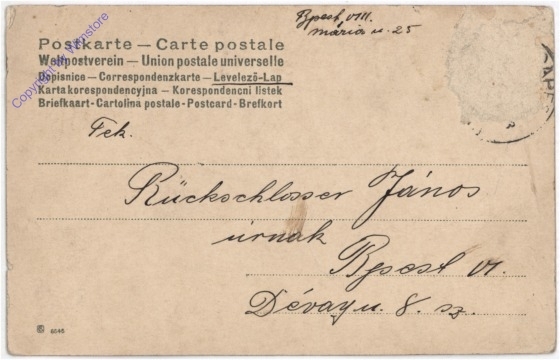 Bpest, VIII.
mária u. 25
Postkarte — Carte postale
Weltpostverein — Union postale universelle
Dopisnice — Correspondenzkarte — Levelező-Lap
Karta korespondencyjna — Korespondencni listek
Briefkaart - Cartolina postale - Postcard - Brefkort
Tek.
Rückschlosser János
úrnak
Bpest VI.
Dévay u. 8. sz.
6846